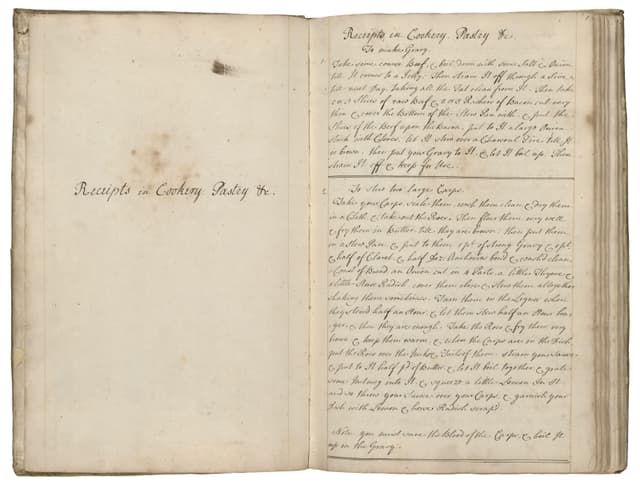 Receipts in Cookery, Pastry &c.
Receipts in Cookery, Pastry &c.
1
To make Gravy.
Take some coarse Beef, & boil down with some Salt & Onion
till It comes to a Jelly; Then strain It off through a Sieve,
till next Day, taking all the Fat clean from It. Then take
2 or 3 Slices of raw Beef & 2 or 3 Rashers of Bacon cut very
thin & cover the Bottom of the Stew Pan with & put the
Slices of the Beef upon the Bacon, put to It a large Onion
stuck with Cloves, let It stew over a Charcoal Fire till It
is brown, then put your Gravy to It, & let It boil up. Then
strain It off & keep for Use.
2
To stew two large Carps.
Take your Carps, scale them, wash them clean & Dry them
in a Cloth & take out the Roes. Then flour them very well
& fry them in Butter till they are brown; then put them
in a Stew Pan & put to them 1 pt of strong Gravy & 1 pt
& half of Claret, & half Doz: Anchovies bon'd & wash'd clean
Crust of Bread an Onion cut in 4 Parts, a little Thyme, &
a little Horse Radish, cover them close & stew them altogether
shaking them sometimes. Turn them in the Liquor when
they stood half an Hour, & let them stew half an Hour lon-
ger, & then they are enough. Take the Roes & fry them very
brown & keep them warm, & when the Carps are in the Dish
put the Roes over the & Tails of them; strain your Sauce
& put to It half pd of Butter, & let It boil together & grate
some Nutmeg into It, & squeeze a little Lemon In It
and so throw your Sauce over your Carps, & garnish your
Dish with Lemon & horse Radish scrap'd.
Note you must save the Blood of the Carps, & boil It
up in the Gravy.